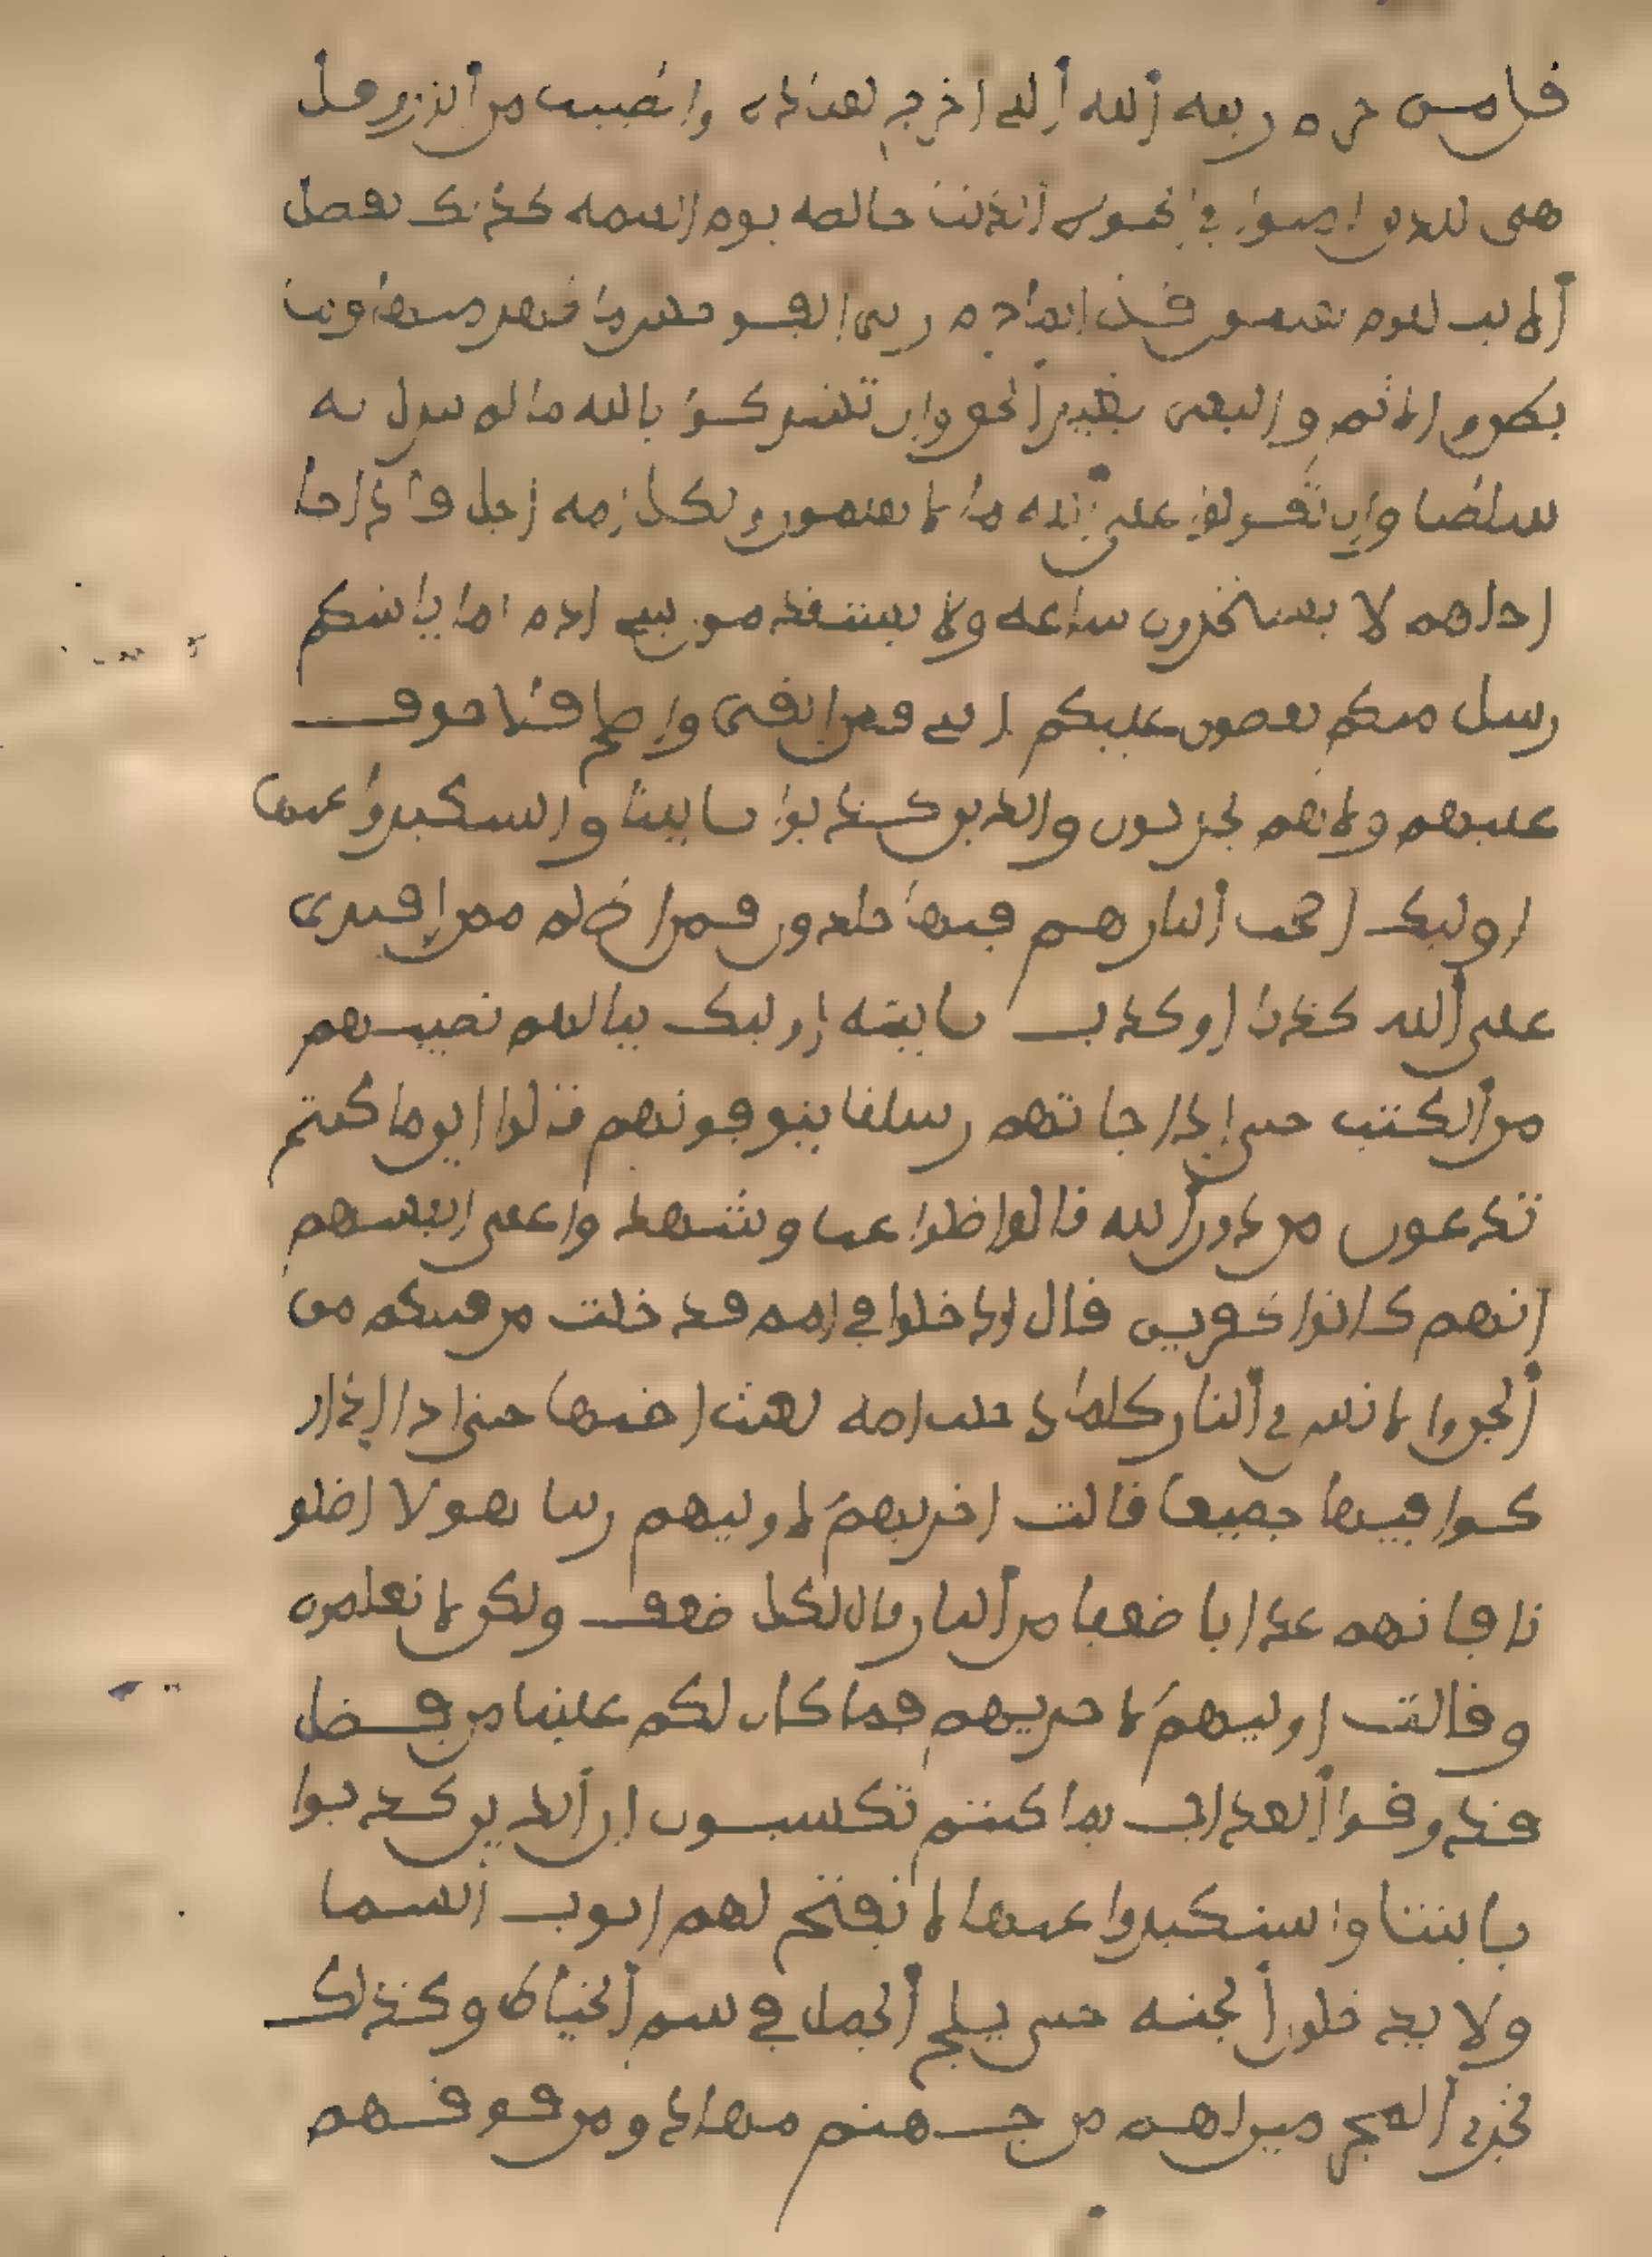 قل من حرم زينه الله التي اخرج لعباده والطيبت من الرزق قل
هي للذين امنوا في الحيوه الدنيا خالصه يوم القيمه كذلك نفصل
الايت لقوم يعلمون قل انما حرم ربي الفوحش ما ظهر منها وما
بطن والاثم والبغي بغير الحق وان تشركوا بالله ما لم ينزل به
سلطنا وان تقولوا على الله ما لا تعلمون ولكل امه اجل فاذا جا
اجلهم لا يستاخرون ساعه ولا يستقدمون يبني ادم اما ياتينكم
رسل منكم يقصون عليكم ايتي فمن اتقى واصلح فلا خوف
عليهم ولا هم يحزنون والذين كذبوا بايتنا واستكبروا عنها
اوليك اصحب النار هم فيها خلدون فمن اظلم ممن افترى
على الله كذبا او كذب بايته اوليك ينالهم نصيبهم
من الكتب حتى اذا جاتهم رسلنا يتوفونهم قالوا اين ما كنتم
تدعون من دون الله قالوا ضلوا عنا وشهدوا على انفسهم
انهم كانوا كفرين قال ادخلوا في امم قد خلت من قبلكم من
الجن والانس في النار كلما دخلت امه لعنت اختها حتى اذا ادار
كوا فيها جميعا قالت اخريهم لاوليهم ربنا هولا اضلو
نا فاتهم عذابا ضعفا من النار قال لكل ضعف ولكن لا تعلمون
وقالت اوليهم لاخريهم فما كان لكم علينا من فضل
فذوقوا العذاب بما كنتم تكسبون ان الذين كذبوا
بايتنا واستكبروا عنها لا تفتح لهم ابوب السما
ولا يدخلون الجنه حتى يلج الجمل في سم الخياط وكذلك
نجزي المجرمين لهم من جهنم مهاد ومن فوقهم